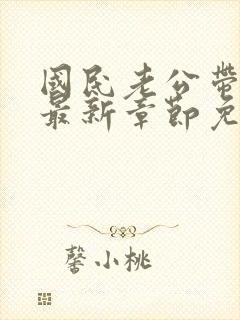 國民老公帶
最新章節免
馨小桃